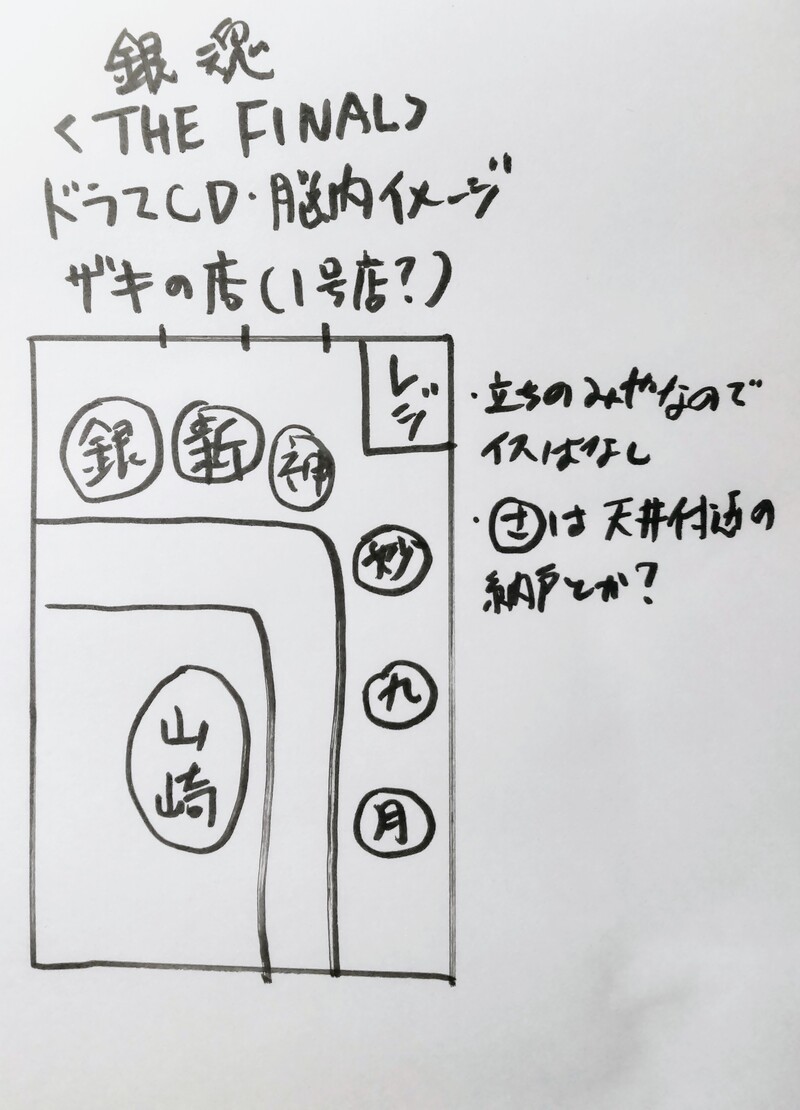 銀魂
<THE FINAL>
ドラマCD・脳内イメージ
ザキの店(1号店?)
レジ
銀
新
神
妙
九
月
山崎
・立ちのみやなので
イスはなし
・さは天井付近の
納戸とか?